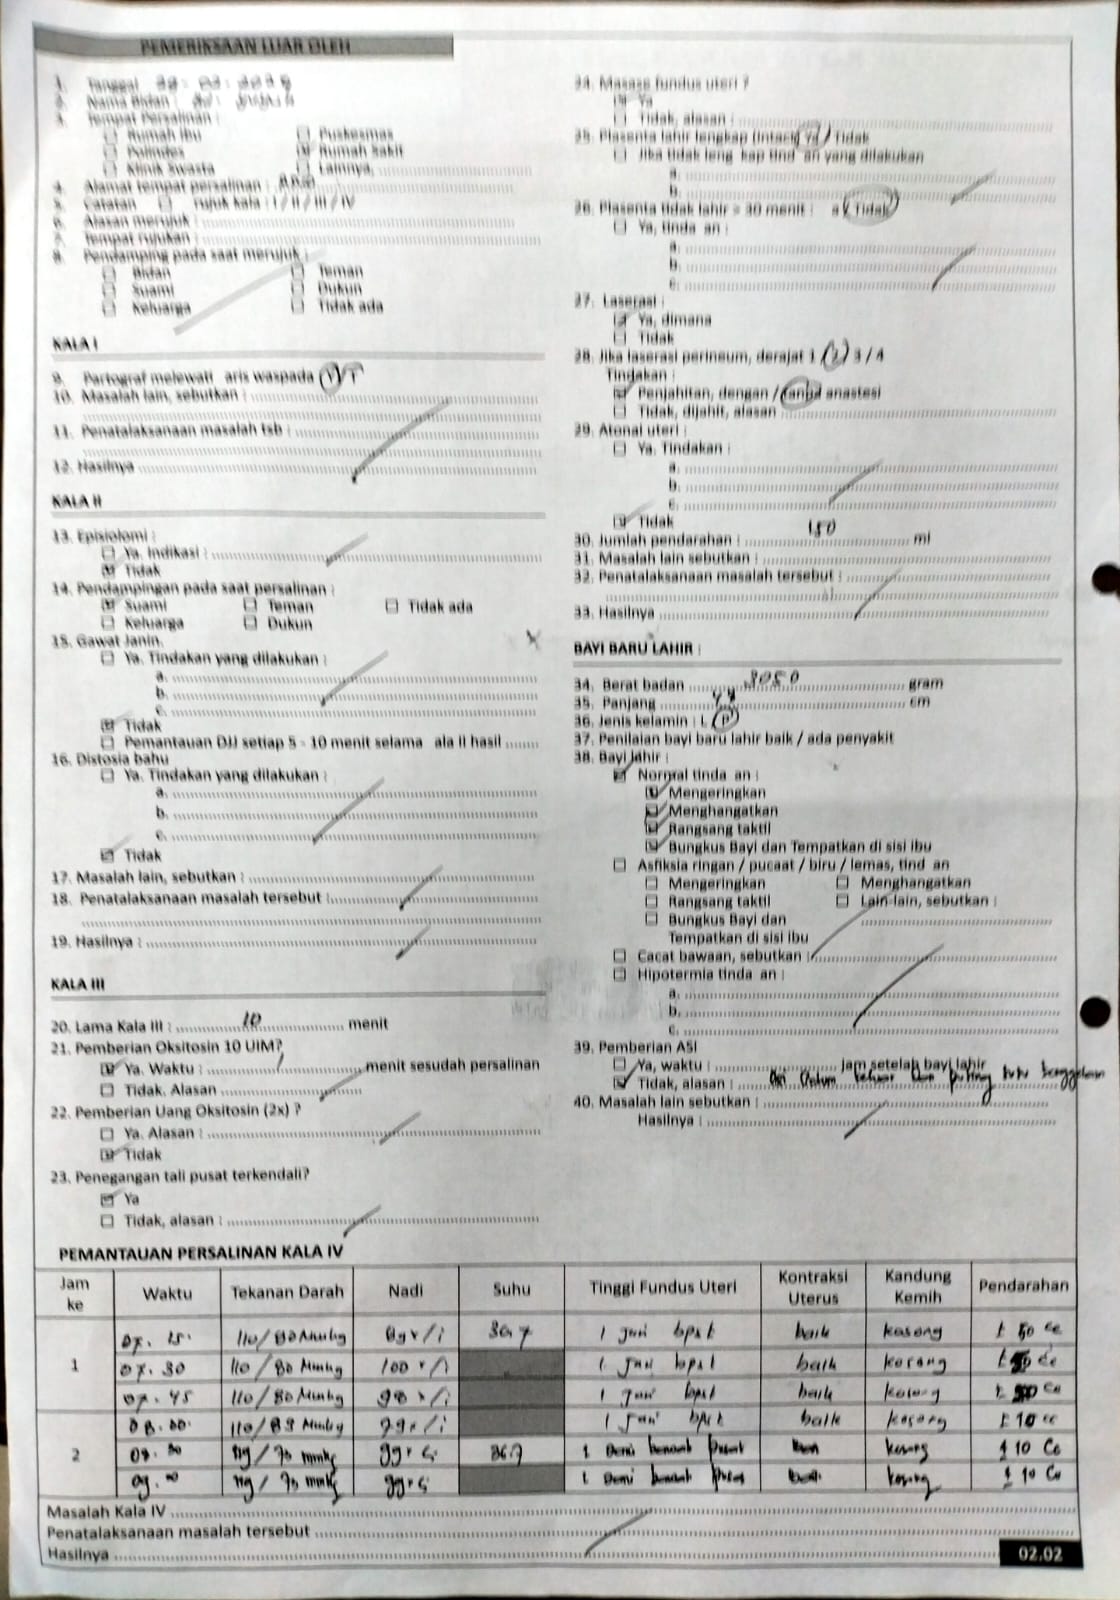 PEMERIKSAAN LUAR OLEH
1. Tanggal
2. Nama Bidan :
3. Tempat Persalinan :
Rumah Ibu
Puskesmas
Polindes
Rumah Sakit
Klinik Swasta
Lainnya,
4. Alamat tempat persalinan :
5. Catatan rujuk kala : I / II / III / IV
6. Alasan merujuk :
7. Tempat rujukan :
8. Pendamping pada saat merujuk :
Bidan
Teman
Suami
Dukun
Keluarga
Tidak ada
KALA I
9. Partograf melewati aris waspada Y/T
10. Masalah lain, sebutkan :
11. Penatalaksanaan masalah tsb :
12. Hasilnya
KALA II
13. Episiolomi :
Ya. Indikasi :
Tidak
14. Pendampingan pada saat persalinan :
Suami
Teman
Tidak ada
Keluarga
Dukun
15. Gawat Janin.
Ya. Tindakan yang dilakukan :
a.
b.
c.
Tidak
Pemantauan DJJ setiap 5 - 10 menit selama ala II hasil
16. Distosia bahu
Ya. Tindakan yang dilakukan :
a.
b.
c.
Tidak
17. Masalah lain, sebutkan :
18. Penatalaksanaan masalah tersebut :
19. Hasilnya :
KALA III
20. Lama Kala III : 10 menit
21. Pemberian Oksitosin 10 UIM?
Ya. Waktu : menit sesudah persalinan
Tidak. Alasan
22. Pemberian Uang Oksitosin (2x) ?
Ya. Alasan :
Tidak
23. Penegangan tali pusat terkendali?
Ya
Tidak, alasan :
24. Masase fundus uteri ?
Ya
Tidak, alasan :
25. Plasenta lahir lengkap (Intact) Ya / Tidak
Jika tidak leng kap tind an yang dilakukan
a.
b.
26. Plasenta tidak lahir > 30 menit : a / Tidak
Ya, tinda an :
a.
b.
c.
27. Laserasi :
Ya, dimana
Tidak
28. Jika laserasi perineum, derajat 1 / 2 / 3 / 4
Tindakan :
Penjahitan, dengan / tanpa anastesi
Tidak, dijahit, alasan
29. Atonai uteri :
Ya. Tindakan :
a.
b.
c.
Tidak
30. Jumlah pendarahan : 150 ml
31. Masalah lain sebutkan :
32. Penatalaksanaan masalah tersebut :
33. Hasilnya
BAYI BARU LAHIR :
34. Berat badan 3050 gram
35. Panjang cm
36. Jenis kelamin : L P
37. Penilaian bayi baru lahir baik / ada penyakit
38. Bayi lahir :
Normal tinda an :
Mengeringkan
Menghangatkan
Rangsang taktil
Bungkus Bayi dan Tempatkan di sisi ibu
Asfiksia ringan / pucaat / biru / lemas, tind an
Mengeringkan
Menghangatkan
Rangsang taktil
Lain-lain, sebutkan :
Bungkus Bayi dan
Tempatkan di sisi ibu
Cacat bawaan, sebutkan :
Hipotermia tinda an :
a.
b.
c.
39. Pemberian ASI
Ya, waktu : jam setelah bayi lahir
Tidak, alasan : belum keluar dan puting
40. Masalah lain sebutkan :
Hasilnya :
PEMANTAUAN PERSALINAN KALA IV
Jam ke Waktu Tekanan Darah Nadi Suhu Tinggi Fundus Uteri Kontraksi Uterus Kandung Kemih Pendarahan
1 07.15 110/80 mmHg 36.7 1 Jari bpst baik kosong ± 50 cc
07.30 110/80 mmHg 100 x/i 1 Jari bpst baik kosong
07.45 110/80 mmHg 98 x/i 1 Jari bpst baik kosong
08.00 1 Jari bpst baik kosong ± 10 cc
2 36.7 kosong ± 10 cc
kosong ± 10 cc
Masalah Kala IV
Penatalaksanaan masalah tersebut
Hasilnya
02.02